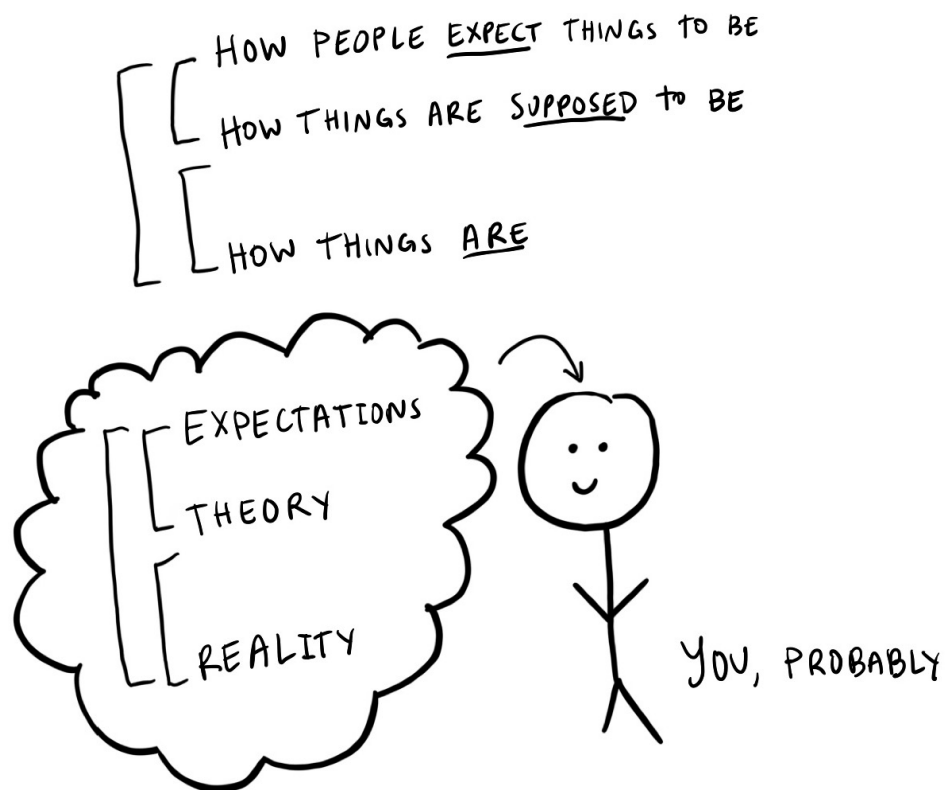 HOW PEOPLE EXPECT THINGS TO BE
HOW THINGS ARE SUPPOSED to BE
HOW THINGS ARE
EXPECTATIONS
THEORY
REALITY
YOU, PROBABLY